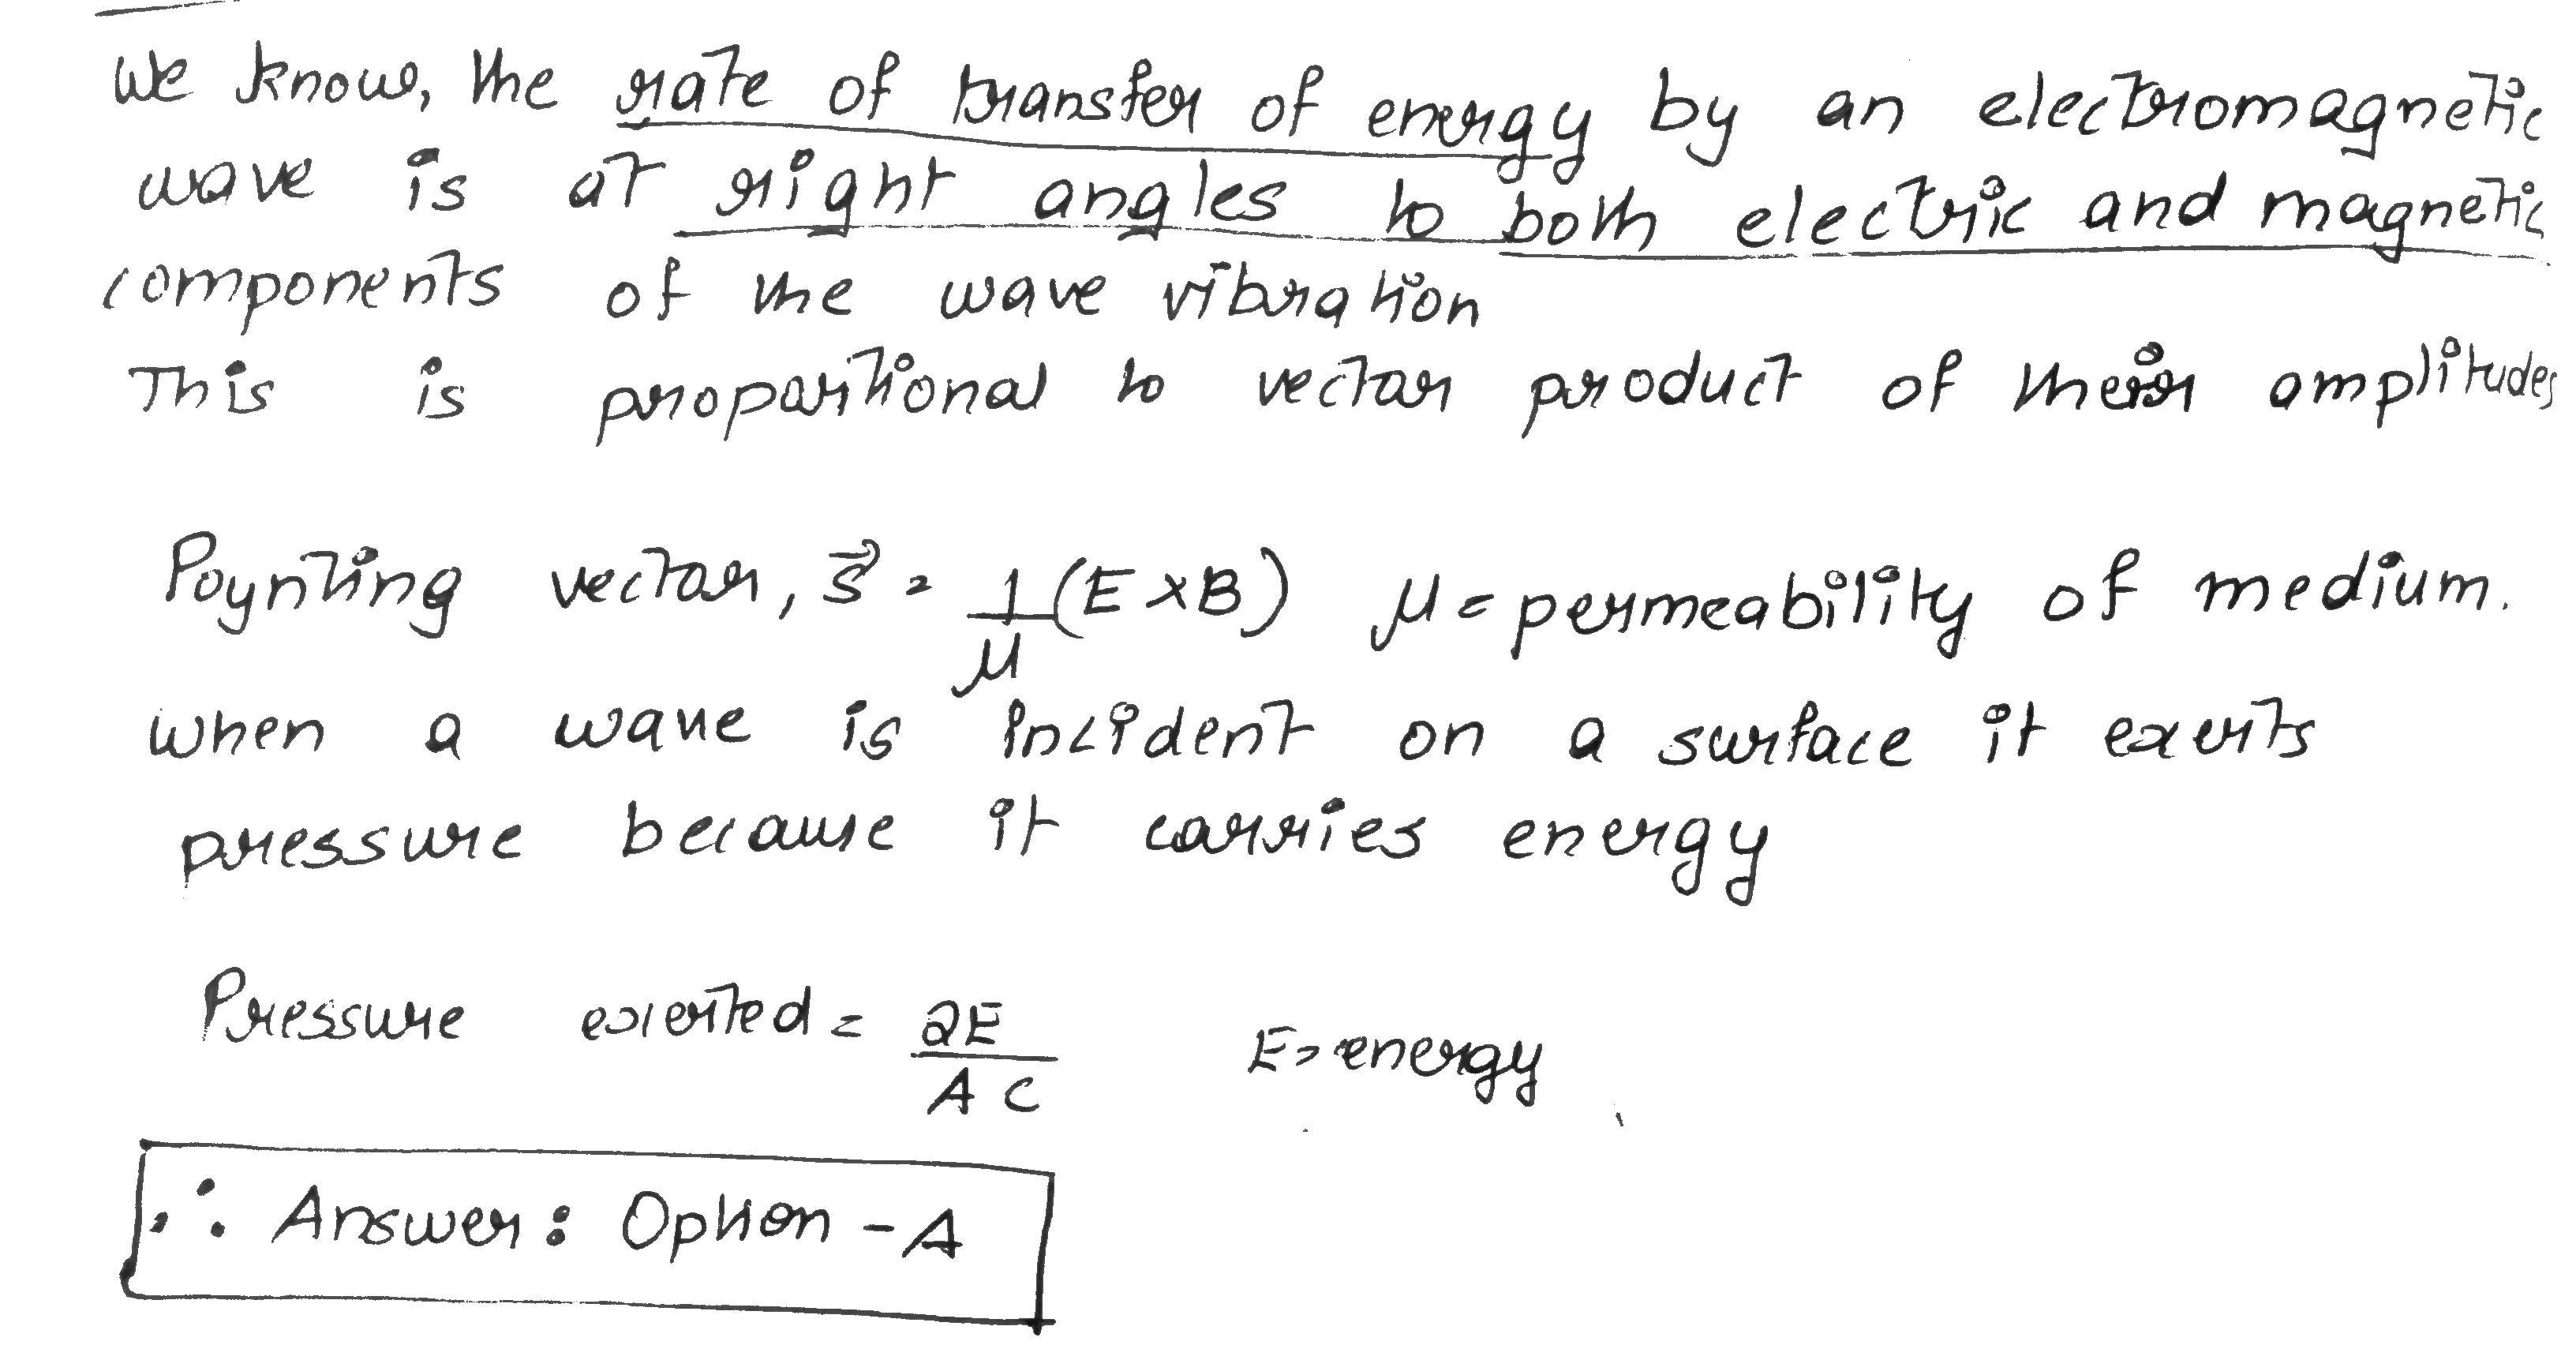 We know, the rate of transfer of energy by an electromagnetic
wave is at right angles to both electric and magnetic
components of the wave vibration
This is proportional to vector product of their amplitudes
Poynting vector, S⃗ = 1/μ (E×B) μ = permeability of medium.
when a wave is incident on a surface it exerts
pressure because it carries energy
Pressure exerted = 2E/AC E = energy
∴ Answer: Option - A